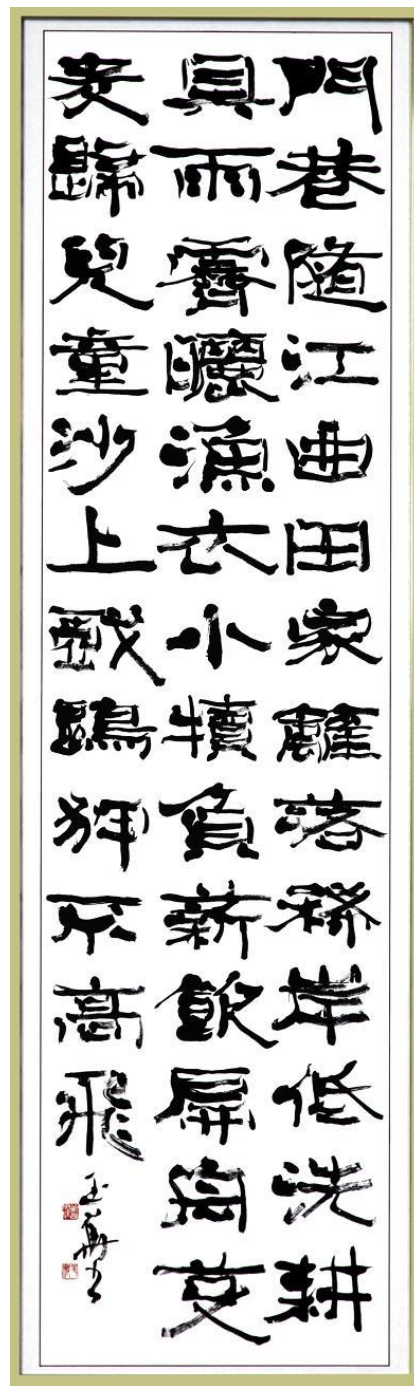 門巷隨江曲田家籬落稀岸低洗耕
具雨霽曬漁衣小犢負薪飲孱翁芟
麦歸兒童沙上戲鷗狎不高飛